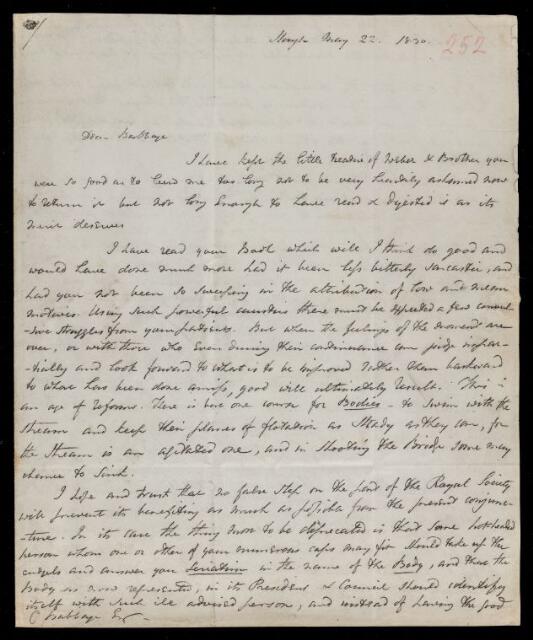 Slough May 22. 1830.
252
Dear Babbage
I have kept the little treatise of Weber & Brother you
were so good as to lend me too long not to be very heartily ashamed now
to return it but not long enough to have read & digested it as its
merit deserves
I have read your Book which will I think do good and
would have done much more had it been less bitterly sarcastic, and
had you not been so sweeping in the attribution of low and mean
motives. Using such powerful caustics there must be expected a few convul-
-sive struggles from your patients. But when the feelings of the moment are
over, or with those who even during their continuance can judge impar-
-tially and look forward to what is to be improved rather than backward
to what has been done amiss, good will ultimately result. This is
an age of reforms. There is but one course for Bodies - to swim with the
stream and keep their planes of flotation as steady as they can, for
the stream is an agitated one, and in shooting the Bridge some may
chance to sink.
I hope and trust that no false step on the part of the Royal Society
will prevent its benefiting as much as possible from the present conjunc-
-ture. In its case the thing most to be deprecated is that some hot headed
person whom one or other of your numerous caps may fit should take up the
cudgels and answer you seriatim in the name of the Body, and that the
Body as now represented, in its President & Council should identify
itself with such ill advised person, and instead of having the good
C Babbage Esq